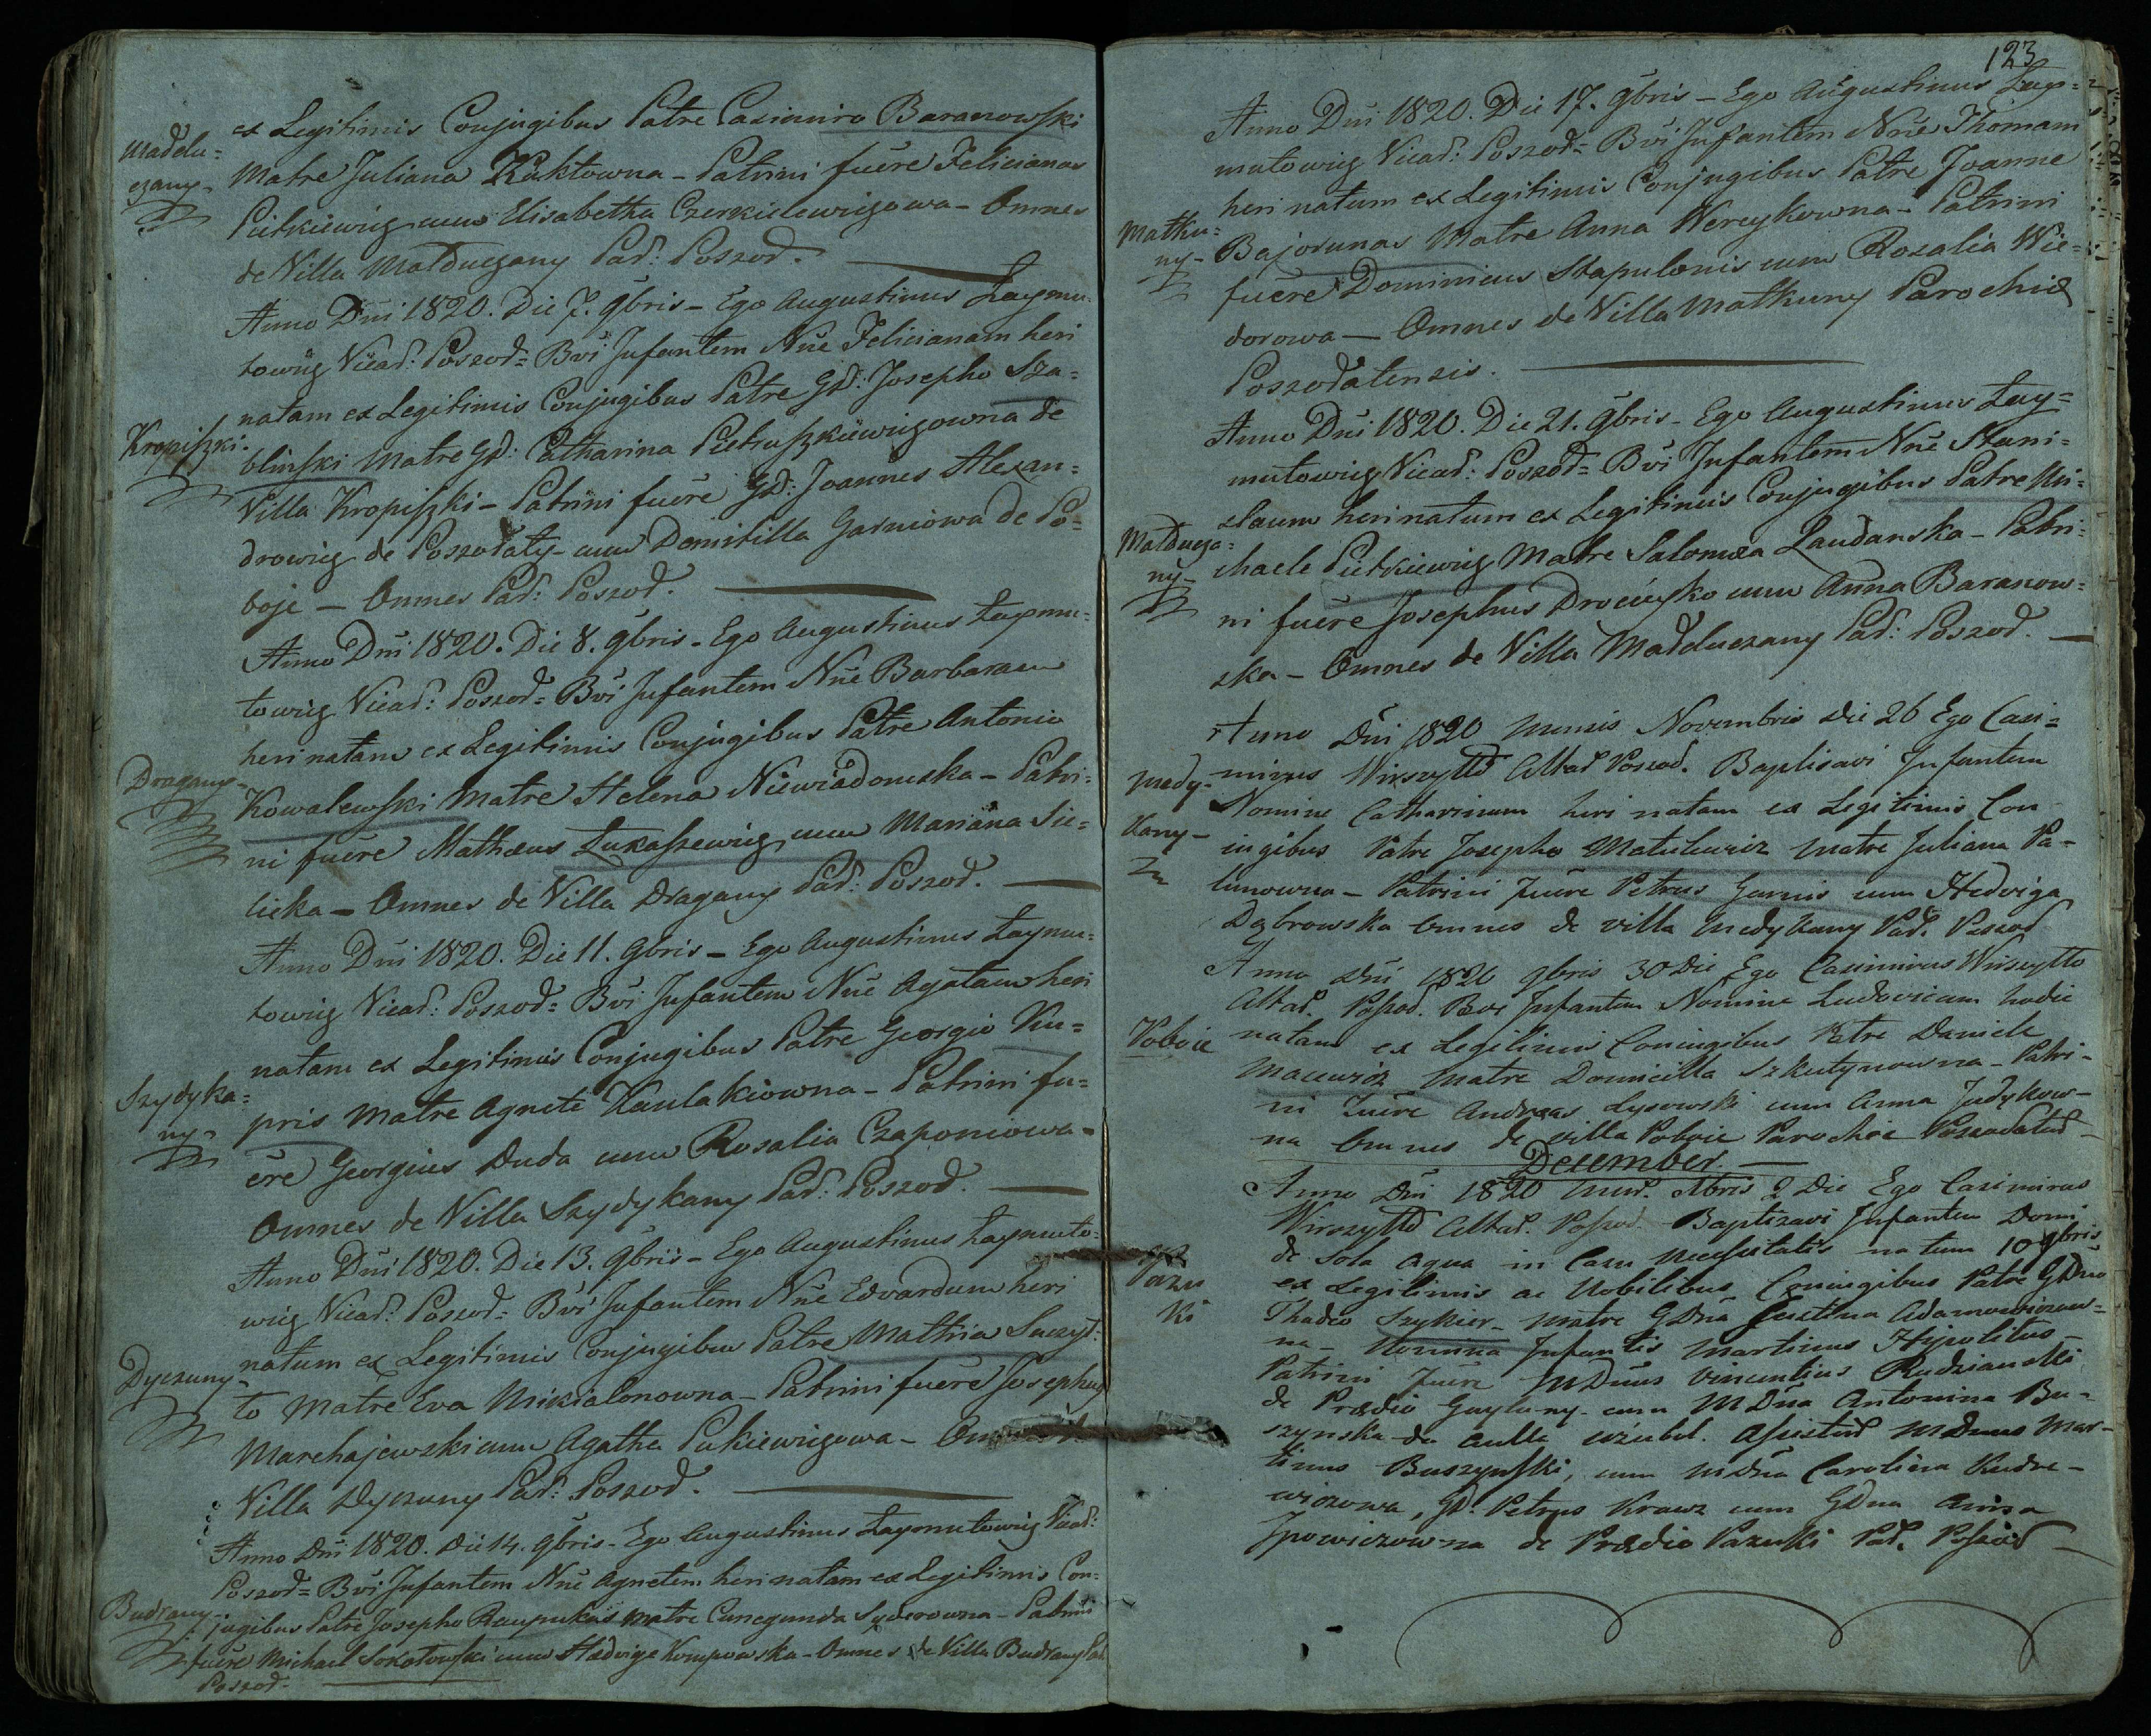 ex Legitimis Conjugibus Patre Casimiro Baranowski
Madelu=
czany-
Matre Juliana Kuktowna - Patrini fuere Felicianus
Pietkiewicz cum Elisabetha Czerkielewiczowa - Omnes
de Villa Madluczany Par: Poszod.
Anno Dni 1820. Die 7. 9bris - Ego Augustinus Laymu=
towicz Vicar: Poszod= Bvi Infantem Nne Felicianam heri
natam ex Legitimis Conjugibus Patre Gd: Josepho Sza=
Kropiszki.
blinski Matre Gd: Catharina Pietruszkiewiczowna de
Villa Kropiszki - Patrini fuere Gd: Joannes Alexan=
drowicz de Poszodaty cum Domitilla Garniowa de Po=
boje - Omnes Par: Poszod.
Anno Dni 1820. Die 8. 9bris - Ego Augustinus Laymu=
towicz Vicar: Poszod= Bvi Infantem Nne Barbaram
heri natam ex Legitimis Conjugibus Patre Antonio
Dragany-
Kowalewski Matre Helena Niewiadomska - Patri=
ni fuere Mathæus Lukaszewicz cum Mariana Sie=
licka - Omnes de Villa Dragany Par: Poszod.
Anno Dni 1820. Die 11. 9bris - Ego Augustinus Laymu=
towicz Vicar: Poszod= Bvi Infantem Nne Agatam heri
natam ex Legitimis Conjugibus Patre Georgio Ku=
Szydyka=
ny-
pris Matre Agnete Kaulakiowna - Patrini fu=
ere Georgius Duda cum Rosalia Czaponiowa -
Omnes de Villa Szydykany Par: Poszod.
Anno Dni 1820. Die 13. 9bris - Ego Augustinus Laymuto=
wicz Vicar: Poszod= Bvi Infantem Nne Edvardum heri
natum ex Legitimis Conjugibus Patre Mathia Suczyl=
Dyczuny-
to Matre Eva Mikialonowna - Patrini fuere Josephus
Marchajewski cum Agatha Pukiewiczowa - Omnes de
Villa Dyczuny Par: Poszod.
Anno Dni 1820. Die 14. 9bris - Ego Augustinus Laymutowicz Vicar:
Poszod= Bvi Infantem Nne Agnetem heri natam ex Legitimis Con=
Budrany-
jugibus Patre Josepho Raupukas Matre Cunegunda Syderowna - Patrini
fuere Michael Sokolowski cum Hedvige Kompowska - Omnes de Villa Budrany Par.
Poszod-
123
Anno Dni 1820. Die 17. 9bris - Ego Augustinus Lay=
mutowicz Vicar: Poszod= Bvi Infantem Nne Thomam
heri natum ex Legitimis Conjugibus Patre Joanne
Matku=
ny-
Bajorunas Matre Anna Wereykowna - Patrini
fuere Dominicus Stapulonis cum Rozalia Wie=
dorowa - Omnes de Villa Matkuny Parochiæ
Poszodatensis.
Anno Dni 1820. Die 21. 9bris - Ego Augustinus Lay=
mutowicz Vicar: Poszod= Bvi Infantem Nne Stani=
slaum heri natum ex Legitimis Conjugibus Patre Mi=
Madlucza=
ny-
chaele Pietkiewicz Matre Salomea Laudanska - Patri=
ni fuere Josephus cum Anna Baranow=
ska - Omnes de Villa Madeluczany Par: Poszod.
Anno Dni 1820 Mensis Novembris Die 26 Ego Casi=
mirus Wirszylld Altar Poszod. Baptisavi Infantem
Medy-
kany-
Nomine Catharinam heri natam ex Legitimis Con
iugibus Patre Josepho Matulewicz Matre Juliana Pa-
lunowna - Patrini fuere Petrus Garnis cum Hedviga
Dąbrowska Omnes de villa Medykany Par. Poszod
Anno Dni 1820 9bris 30 Die Ego Casimirus Wirszyllo
Altar. Poszod. Bvi Infantem Nomine Ludovicam hodie
Poboie
natam ex Legitimis Coniugibus Patre Daniele
Macewicz Matre Domicilla Szkutynowna - Patri-
ni fuere Andreas Lysowski cum Anna Judykow-
na Omnes de villa Poboie Parochiæ
December.
Anno Dni 1820 Xbris 2 Die Ego Casimirus
Wirszylld Altar. Poszod. Baptizavi Infantem Domi
de Sola Aqua in Casu Necessitatis natum 10 9bris
Pazu
ki
ex Legitimis ac Nobilibus Coniugibus Patre GDno
Thadeo Szykier - Matre GDna Justina Adamowiczow=
na - Nomina Infantis Martinus Hypolitus -
Patrini fuere MDnus Vincentius Rudzianski
de Prædio Gayluny cum MDna Antonina Bu-
szynska de Aulla MDnus Mar-
tinus Buszynski, cum MDna Carolina Kudre-
wiczowa, GD. Petrus Krawz cum GDna Anna
Jpowiczowna de Prædio Pazuki Par. Poszod